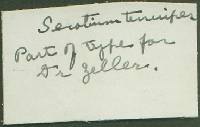 Secotium tenuipes
Part of type for
Dr Zeller.